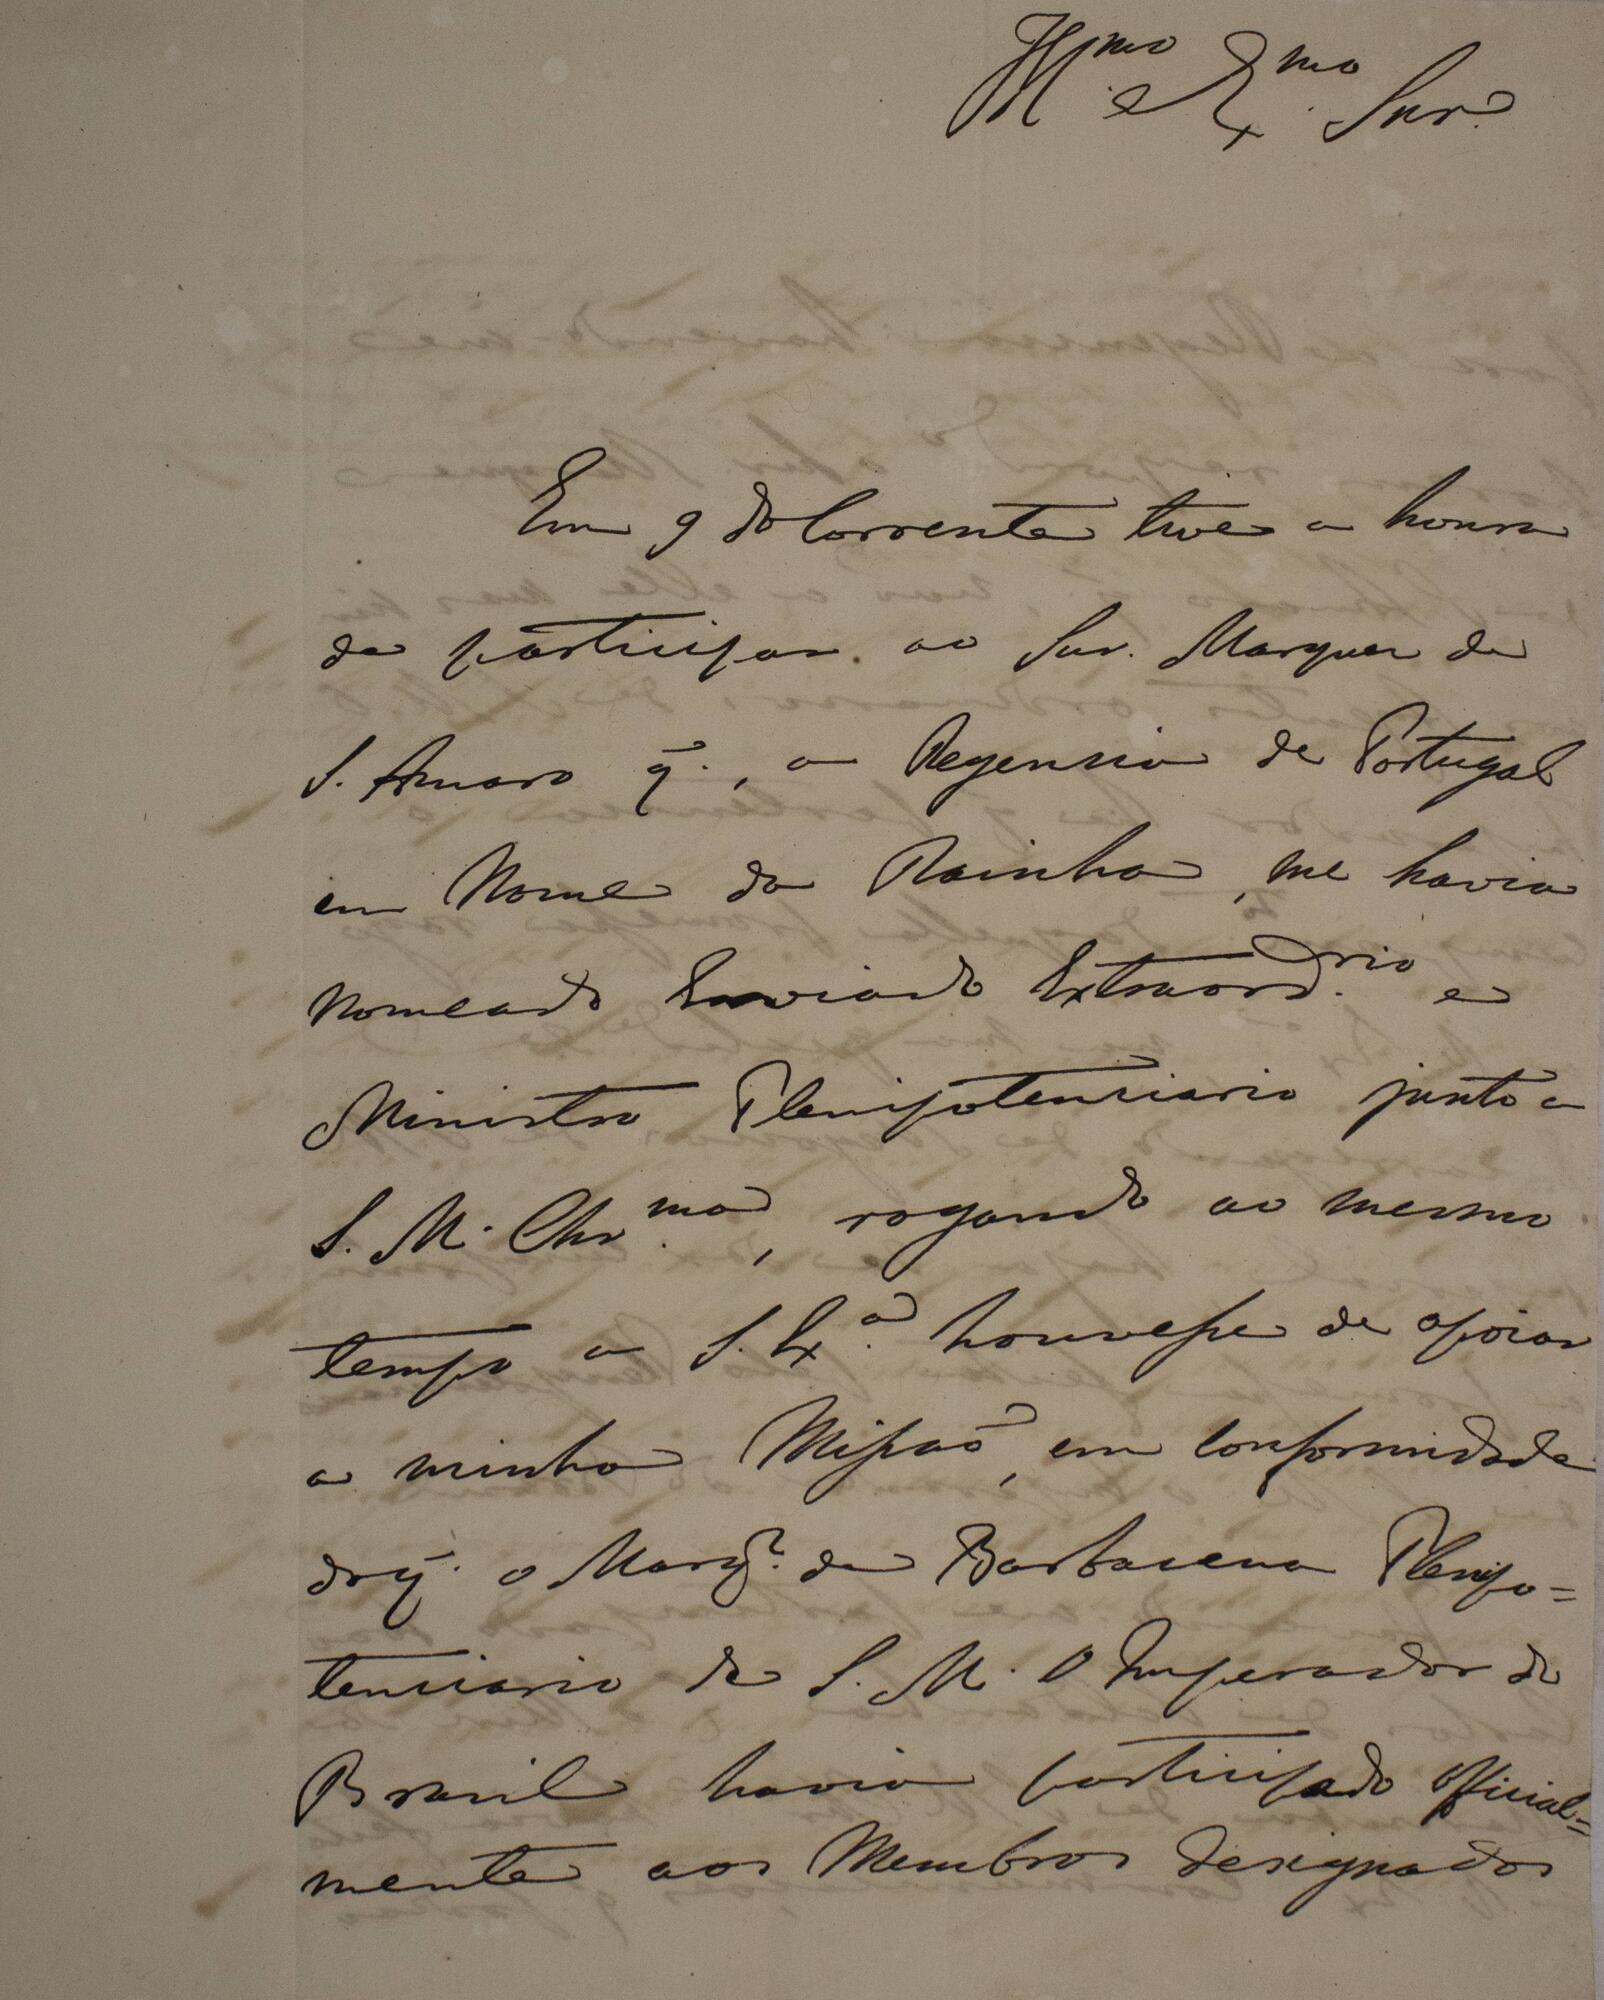 Illmo. e Exmo. Snr.
Em 9 do Corrente tive a honra
de participar ao Snr. Marquez de
S. Amaro q̃., a Regencia de Portugal
em Nome da Rainha, me havia
nomeado Enviado Extraord.rio e
Ministro Plenipotenciario junto a
S. M. Chr.ma, rogando ao mesmo
tempo a S. Ex.a houvesse de apoiar
a minha Missaõ, em conformidade
do q̃. o Marq. de Barbacena Plenipo=
tenciario de S. M. O Imperador do
Brasil havia participado Official=
mente aos Membros designados